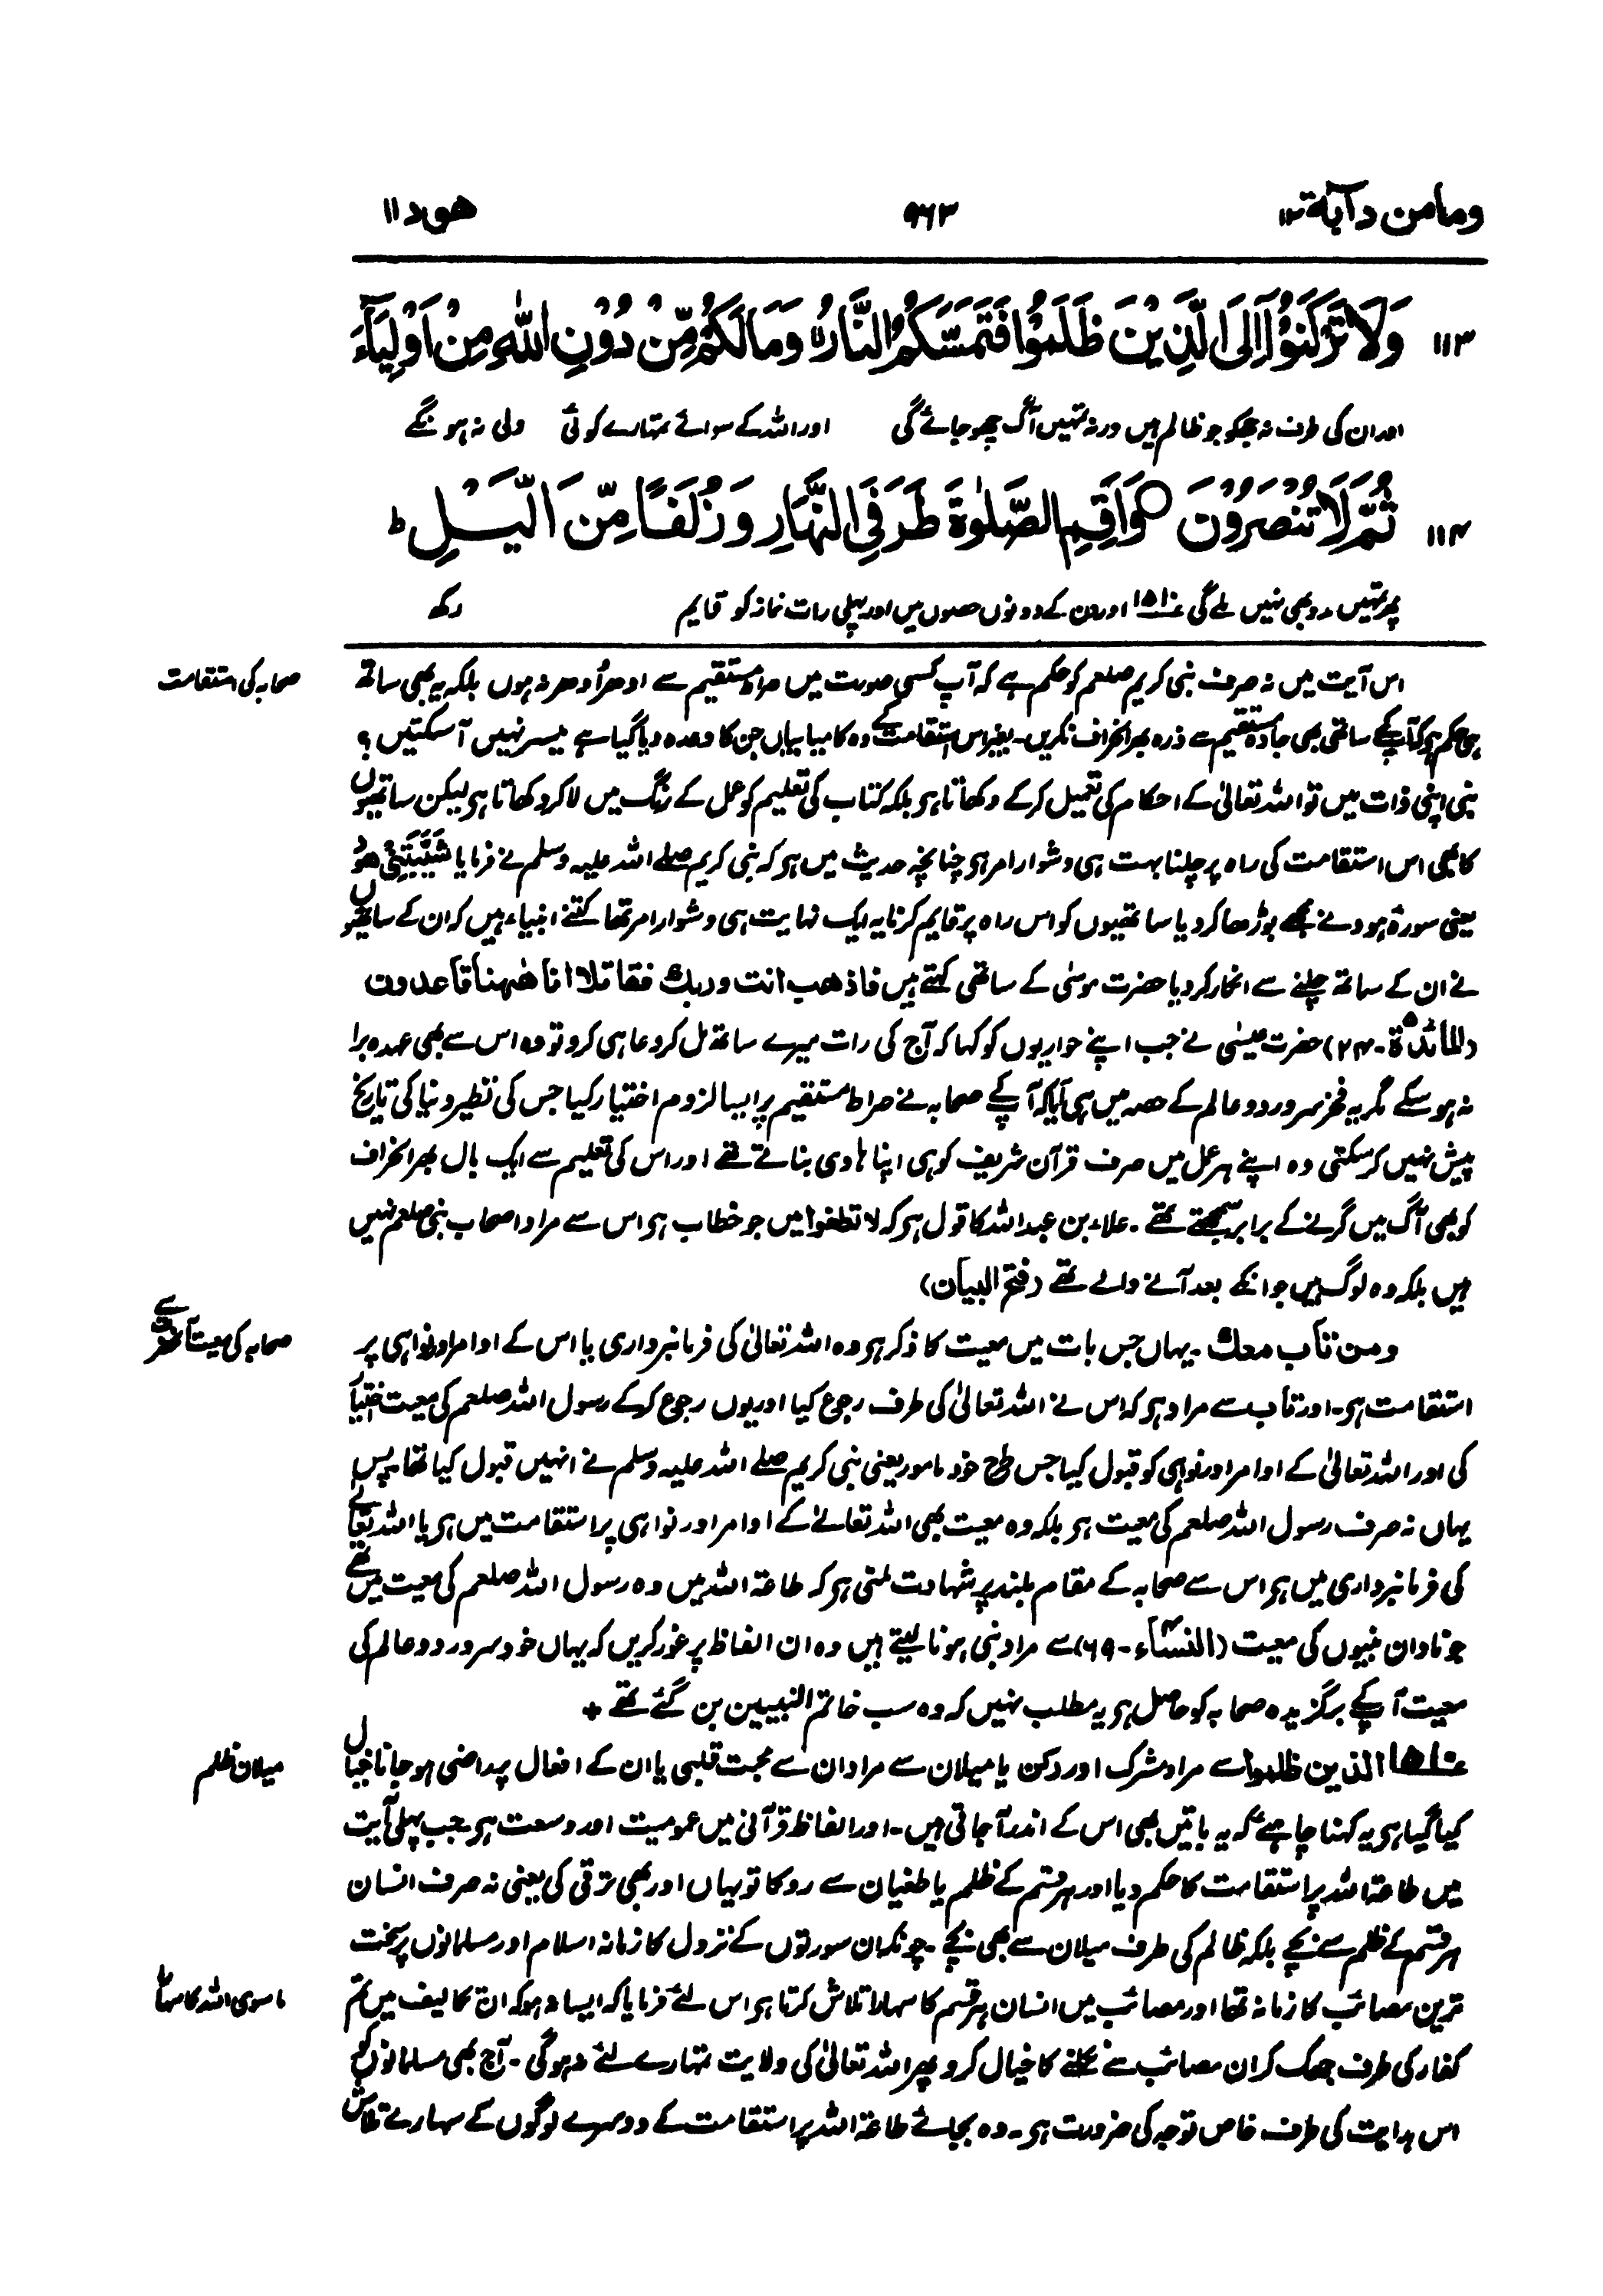 ومامن دآبة ۱۲
۹۶۳
هود ۱۱
۱۱۳ وَلَا تَرْكَنُوْٓا اِلَى الَّذِيْنَ ظَلَمُوْا فَتَمَسَّكُمُ النَّارُ وَمَا لَكُمْ مِّنْ دُوْنِ اللّٰهِ مِنْ اَوْلِيَآءَ
اور ان کی طرف نہ جھکو جو ظالم ہیں ورنہ تمہیں آگ چھو جائے گی اور اللہ کے سوائے تمہارے کوئی ولی نہ ہونگے
۱۱۴ ثُمَّ لَا تُنْصَرُوْنَ ○ وَاَقِمِ الصَّلٰوةَ طَرَفَيِ النَّهَارِ وَزُلَفًا مِّنَ الَّيْلِ ط
پھر تمہیں مدد بھی نہیں ملے گی ۱۵۱۵ اور دن کے دونوں حصوں میں اور پہلی رات نماز کو قایم رکھ
صحابہ کی استقامت
اس آیت میں نہ صرف نبی کریم صلعم کو حکم ہے کہ آپ کسی صورت میں صراط مستقیم سے ادھر اُدھر نہ ہوں بلکہ یہ بھی ساتھ
ہی حکم ہو کہ آپ کے ساتھی بھی جادہ مستقیم سے ذرہ بھر انحراف نکریں۔ بغیر اس استقامت کے وہ کامیابیاں جن کا وعدہ دیا گیا ہے میسر نہیں آ سکتیں ؟
نبی اپنی ذات میں تو اللہ تعالیٰ کے احکام کی تعمیل کر کے دکھاتا ہو بلکہ کتاب کی تعلیم کو عمل کے رنگ میں لا کر دکھاتا ہو لیکن ساتھیوں
کا بھی اس استقامت کی راہ پر چلنا بہت ہی دشوار امر ہو چنانچہ حدیث میں ہو کہ نبی کریم صلے اللہ علیہ وسلم نے فرمایا شَيَّبَتْنِیْ هُوْد
یعنی سورۃ ہود نے مجھے بوڑھا کر دیا ساتھیوں کو اس راہ پر قایم کرنا یہ ایک نہایت ہی دشوار امر تھا کتنے انبیاء ہیں کہ ان کے ساتھیوں
نے ان کے ساتھ چلنے سے انکار کر دیا حضرت موسٰی کے ساتھی کہتے ہیں فاذهب انت وربك فقاتلا انا ههنا قاعدون
(المائدۃ ۵۔۲۴) حضرت عیسٰی نے جب اپنے حواریوں کو کہا کہ آج کی رات میرے ساتھ مل کر دعا ہی کرو تو وہ اس سے بھی عہدہ برا
نہ ہو سکے مگر یہ فخر سرور دو عالم کے حصہ میں ہی آیا کہ آپ کے صحابہ نے صراط مستقیم پر ایسا لزوم اختیار کیا جس کی نظیر دنیا کی تاریخ
پیش نہیں کر سکتی وہ اپنے ہر عمل میں صرف قرآن شریف کو ہی اپنا ہادی بناتے تھے اور اس کی تعلیم سے ایک بال بھر انحراف
کو بھی آگ میں گرنے کے برابر سمجھتے تھے ۔ علاء بن عبد اللہ کا قول ہو کہ لا تطغوا میں جو خطاب ہو اس سے مراد اصحاب نبی صلعم نہیں
ہیں بلکہ وہ لوگ ہیں جو انکے بعد آنے والے تھے (فتح البیان)
صحابہ کی معیت آنحضرت سے
ومن تاب معك ۔ یہاں جس بات میں معیت کا ذکر ہو وہ اللہ تعالیٰ کی فرمانبرداری یا اس کے اوامر و نواہی پر
استقامت ہو۔ اور تاب سے مراد ہو کہ اس نے اللہ تعالیٰ کی طرف رجوع کیا اور یوں رجوع کر کے رسول اللہ صلعم کی معیت اختیار
کی اور اللہ تعالیٰ کے اوامر اور نواہی کو قبول کیا جس طرح خود مامور یعنی نبی کریم صلے اللہ علیہ وسلم نے انہیں قبول کیا تھا پس
یہاں نہ صرف رسول اللہ صلعم کی معیت ہو بلکہ وہ معیت بھی اللہ تعالےٰ کے اوامر اور نواہی پر استقامت میں ہو یا اللہ تعالےٰ
کی فرمانبرداری میں ہو اس سے صحابہ کے مقام بلند پر شہادت ملتی ہو کہ طاعۃ اللہ میں وہ رسول اللہ صلعم کی معیت میں تھے
جو نادان نبیوں کی معیت (النساء ۴۔۶۹) سے مراد نبی ہونا لیتے ہیں وہ ان الفاظ پر غور کریں کہ یہاں خود سرور دو عالم کی
معیت آپ کے برگزیدہ صحابہ کو حاصل ہو یہ مطلب نہیں کہ وہ سب خاتم النبیین بن گئے تھے +
میلان ظلم
۱۵۱۵ الذین ظلموا سے مراد مشرک اور رکن یا میلان سے مراد ان سے محبت قلبی یا ان کے افعال پر راضی ہو جانا خیال
کیا گیا ہو یہ کہنا چاہئے کہ یہ باتیں بھی اس کے اندر آ جاتی ہیں۔ اور الفاظ قرآنی میں عمومیت اور وسعت ہو جب پہلی آیت
میں طاعۃ اللہ پر استقامت کا حکم دیا اور ہر قسم کے ظلم یا طغیان سے روکا تو یہاں اور بھی ترقی کی یعنی نہ صرف انسان
ہر قسم کے ظلم سے بچے بلکہ ظالم کی طرف میلان سے بھی بچے ۔ چونکہ ان سورتوں کے نزول کا زمانہ اسلام اور مسلمانوں پر سخت
ماسوی اللہ کا سہارا
ترین مصائب کا زمانہ تھا اور مصائب میں انسان ہر قسم کا سہارا تلاش کرتا ہو اس لئے فرمایا کہ ایسا نہ ہو کہ ان تکالیف میں تم
کفار کی طرف جھک کر ان مصائب سے نکلنے کا خیال کرو پھر اللہ تعالیٰ کی ولایت تمہارے لئے نہ ہوگی ۔ آج بھی مسلمانوں کو
اس ہدایت کی طرف خاص توجہ کی ضرورت ہو۔ وہ بجائے طاعۃ اللہ پر استقامت کے دوسرے لوگوں کے سہارے تلاش